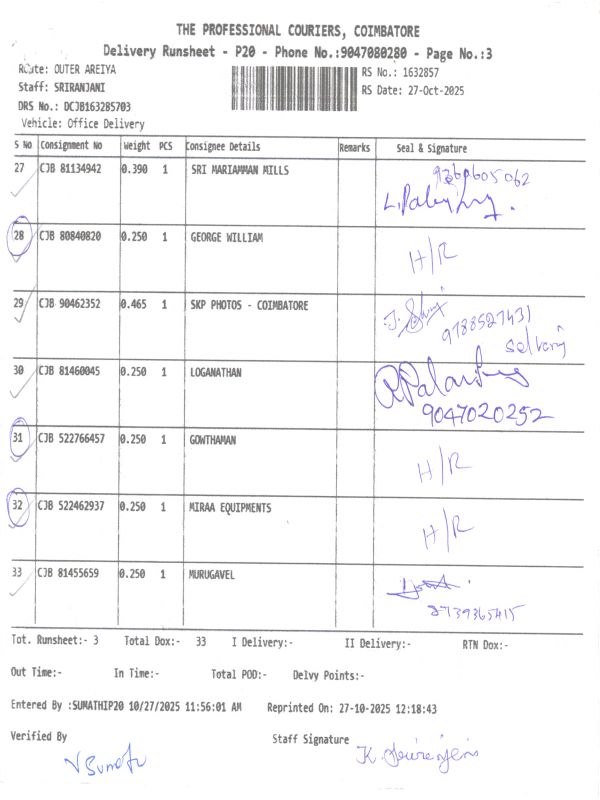 THE PROFESSIONAL COURIERS, COIMBATORE
Delivery Runsheet - P20 - Phone No.:9047080280 - Page No.:3
Route: OUTER AREIYA RS No.: 1632857
Staff: SRIRANJANI RS Date: 27-Oct-2025
DRS No.: DCJB163285703
Vehicle: Office Delivery
S No Consignment No Weight PCS Consignee Details Remarks Seal & Signature
27 CJB 81134942 0.390 1 SRI MARIAMMAN MILLS
28 CJB 80840820 0.250 1 GEORGE WILLIAM H/R
29 CJB 90462352 0.465 1 SKP PHOTOS - COIMBATORE
9788527431
30 CJB 81460045 0.250 1 LOGANATHAN
9047020252
31 CJB 522766457 0.250 1 GOWTHAMAN H/R
32 CJB 522462937 0.250 1 MIRAA EQUIPMENTS H/R
33 CJB 81455659 0.250 1 MURUGAVEL
8739365415
Tot. Runsheet:- 3 Total Dox:- 33 I Delivery:- II Delivery:- RTN Dox:-
Out Time:- In Time:- Total POD:- Delvy Points:-
Entered By :SUMATHIP20 10/27/2025 11:56:01 AM Reprinted On: 27-10-2025 12:18:43
Verified By Staff Signature